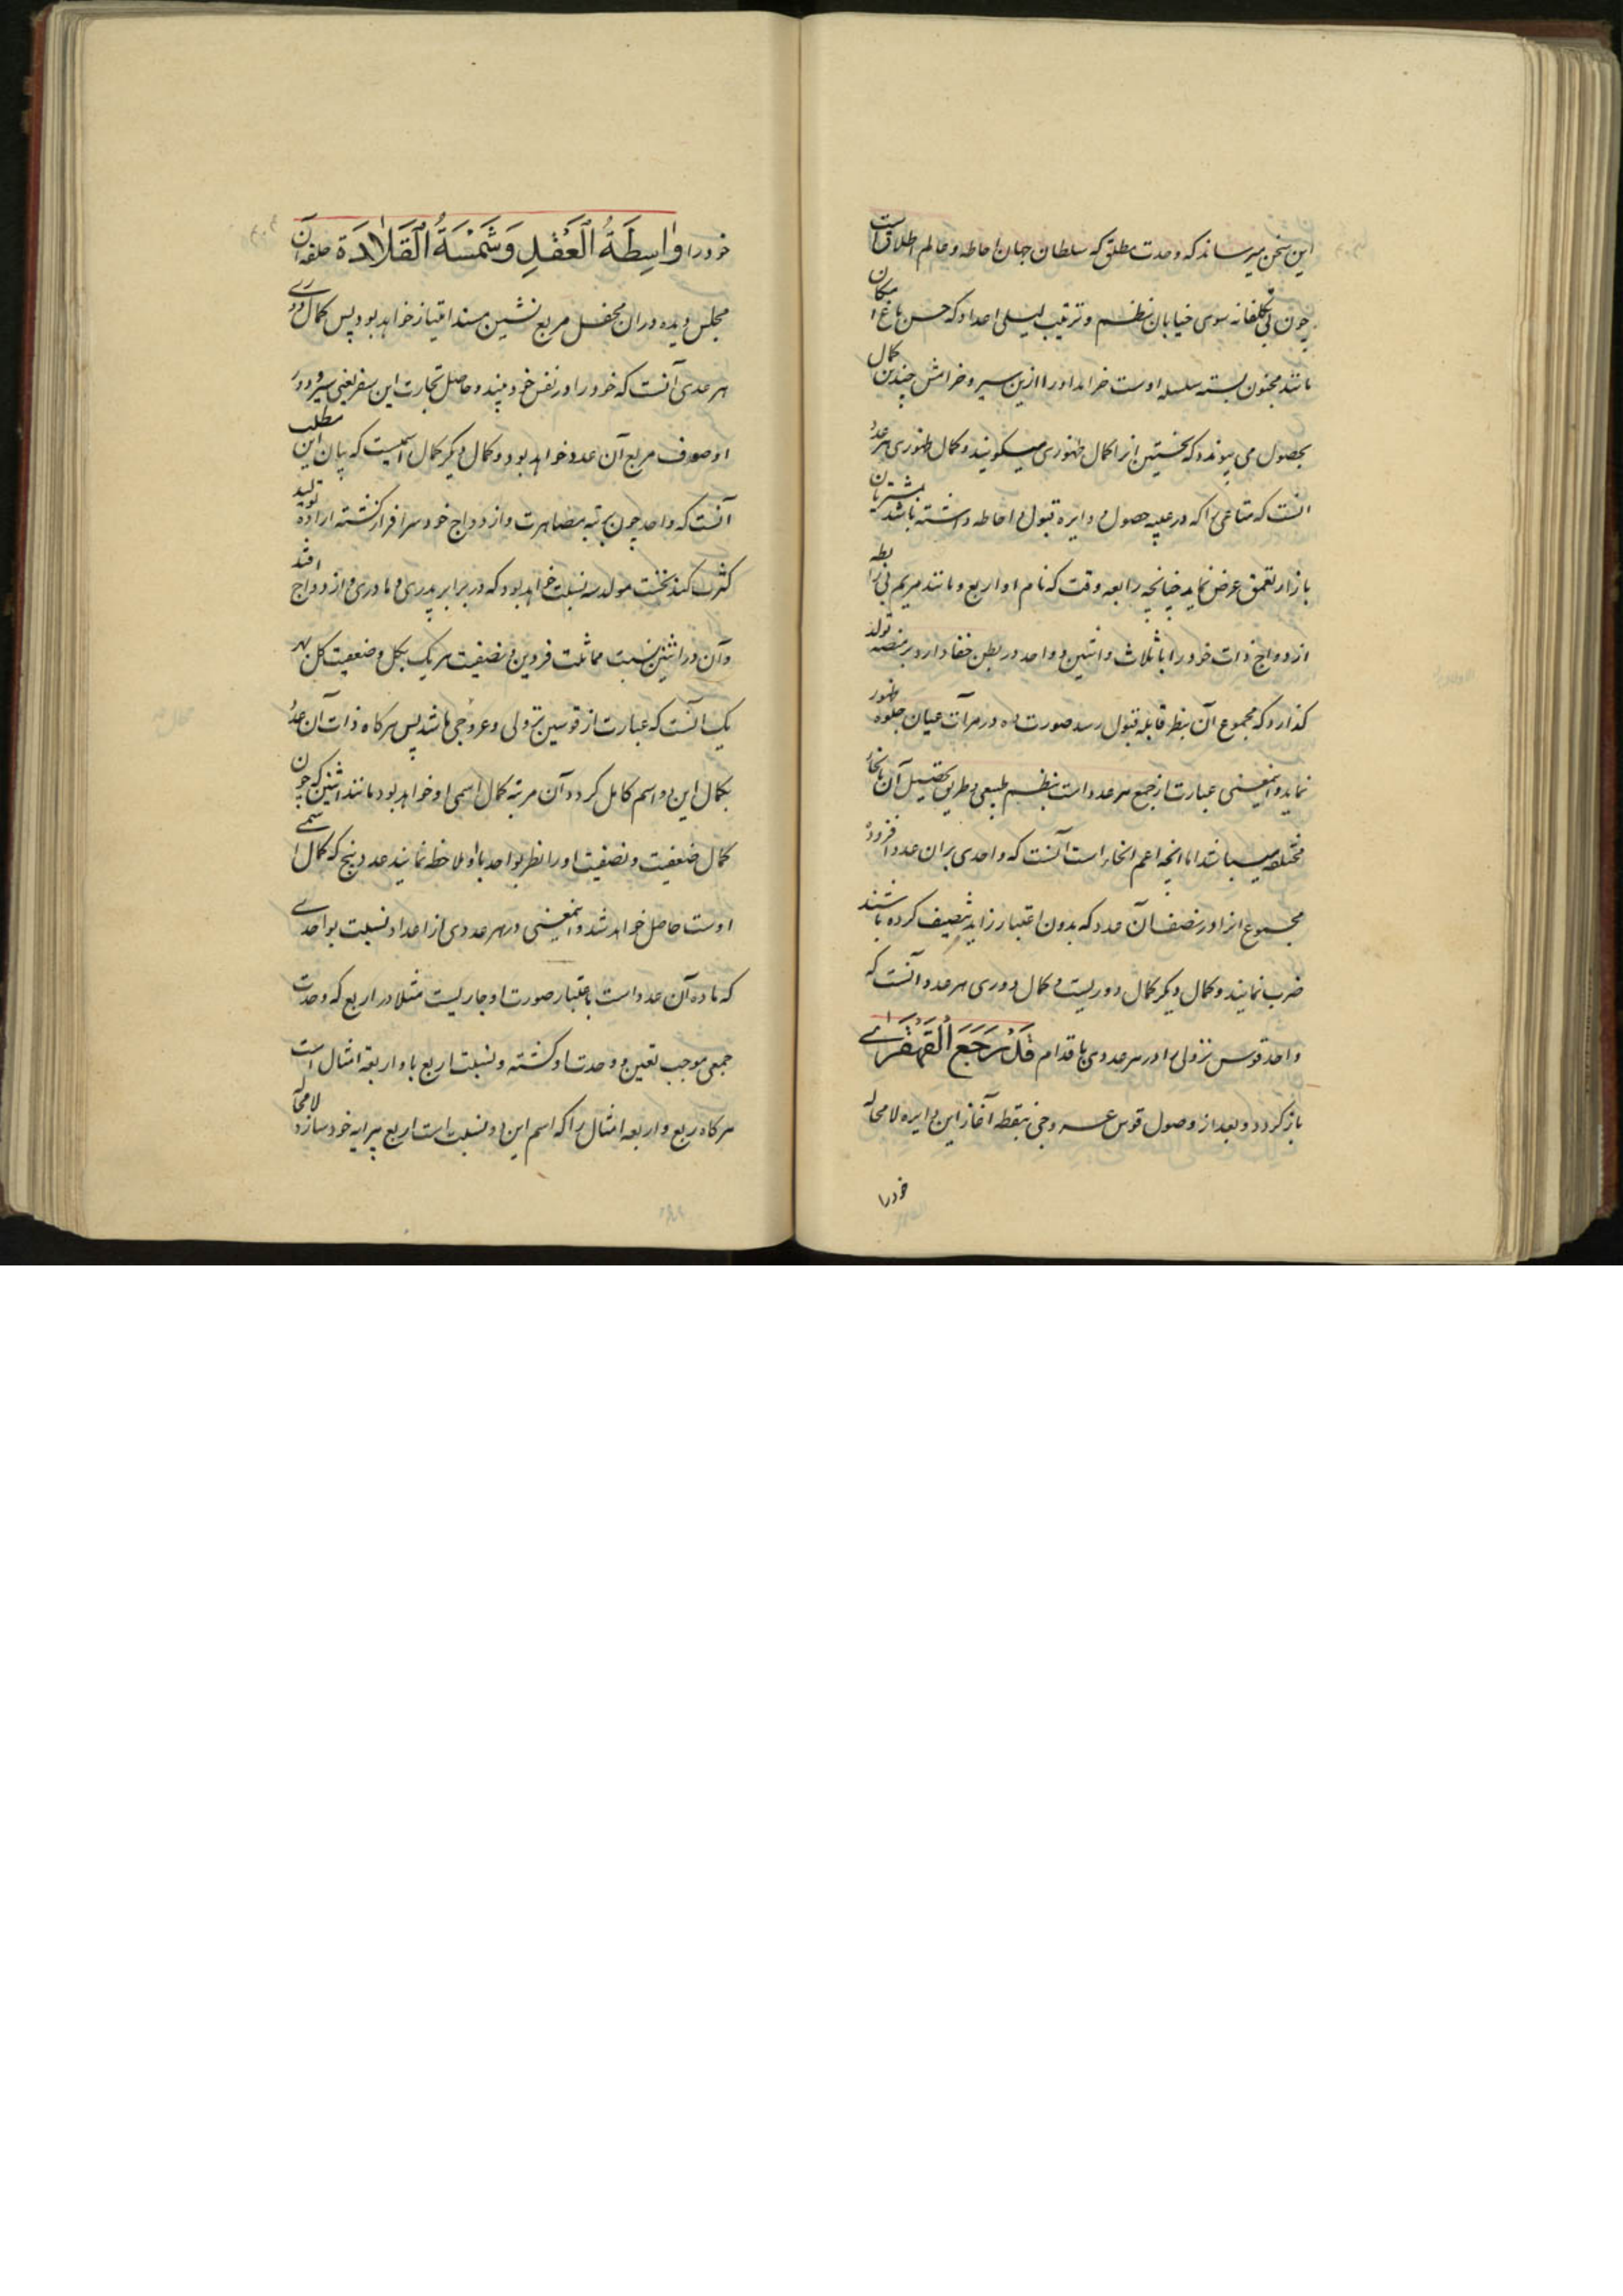 این سخن میرساند که وحدت مطلق که سلطان جهان احاطه و عالم اطلاق است
چون بی تکلفانه سوی خیابان نظم و ترتیب لیلی اعداد که حسن باغ امکان
مانند مجنون بسته سلسله اوست خرامد او را ازین سیر و خرامش چندین کمال
بحصول می پیوندد که نخستین انرا کمال ظهوری میگویند و کمال ظهوری هر عدد
انست که متاعی را که در عیبه حصول و دایره قبول و احاطه داشته باشد بمشتریان
بازار تعمق عرض نماید چنانچه رابعه وقت که نام او اربع و مانند مریم بی رابطه
ازدواج ذات خود را با ثلاث و اثنین و واحد در بطن خفا دارد بر منصه تولد
گذارد که مجموع آن بنظر قابله قبول رسد صورت ده در مرآت عیان جلوه ظهور
نماید و اینمعنی عبارت از جمع هر عدد است بنظم طبیعی و طریق تحصیل آن بانحاء
مختلفه میباشد اما انچه اعم انحاء است آنست که واحدی بران عدد افزوده
مجموع انرا در نصف آن عدد که بدون اعتبار زاید تنصیف کرده باشند
ضرب نمایند و کمال دیگر کمال دوریست و کمال دوری هر عدد آنست که
واحد قوس نزولی را در هر عددی باقدام قَدْ رَجَعَ الْقَهْقَرٰے
باز گردد و بعد از وصول قوس عروجی بنقطه آغاز این دایره لامحاله
خودرا
خود را وٰاسِطَةُ الْعَقْدِ وَشَمْسَةُ الْقَلٰادَة حلقه آن
مجلس دیده دران محفل مربع نشین مسند امتیاز خواهد بود پس کمال دوری
هر عدی آنست که خود را در نفس خود بیند و حاصل تجارت این سفر یعنی سیر و دور
او صرف مربع آن عدد خواهد بود و کمال دیگر کمال اسمیست که بیان این مطلب
آنست که واحد چون برتبه مصاهرت و ازدواج خود سرافراز گشته اراده تولید
کثرت کند نخست مولد سه نسبت خواهد بود که در برابر پدری و مادری و ازدواج افتد
وآن در اثنین نسبت مماثلت فردین و نصفیت هر یک بکل و ضعفیت کل بهر
یک آنست که عبارت از قوسین نزولی و عروجی باشد پس هرکاه ذات آن عدد
بکمال این دو اسم کامل گردد آن مرتبه کمال اسمی او خواهد بود مانند اثنین که چون
کمال ضعفیت و نصفیت او را نظر بواحد با او ملاحظه نمایند عدد پنج که کمال اسمے
اوست حاصل خواهد شد و اینمعنی در هر عددی از اعداد نسبت بواحدے
که ماده آن عدد است باعتبار صورت او جاریست مثلا در اربع که وحدت
جمعی موجب تعین و وحدت او گشته و نسبت اربع باو اربعة امثال است
هرکاه ربع و اربعه امثال را که اسم این دو نسبت است اربع پیرایه خود سازد لامحاله